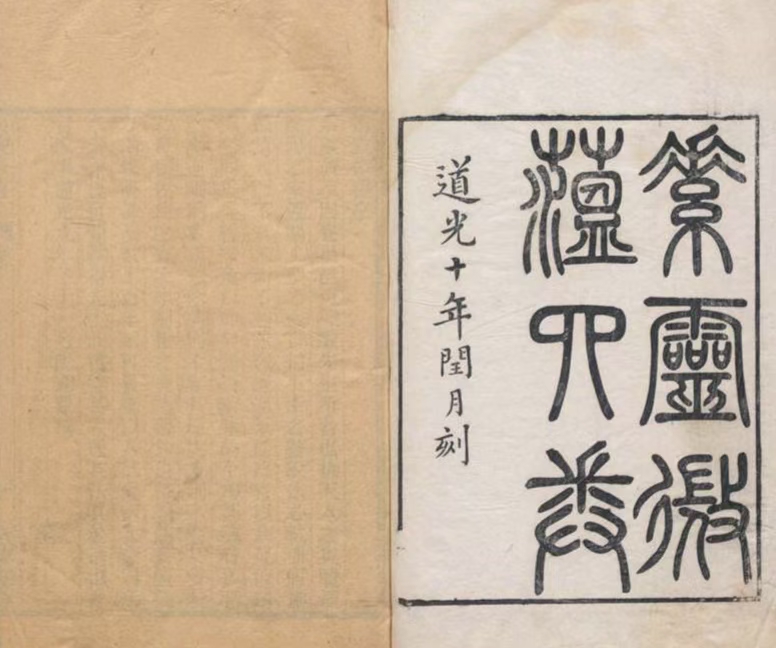 素靈微
薀四卷
道光十年閏月刻